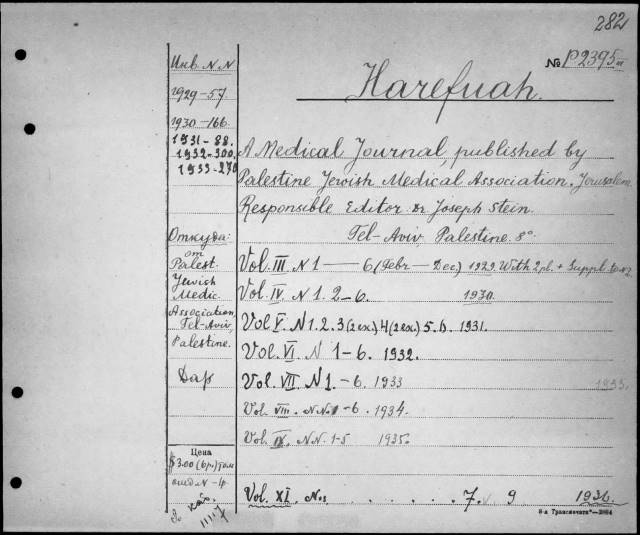 282
№ P2395
Harefuah.
Инв. N.N
1929-57.
1930-166.
1931-88.
1932-300.
1933-270
A Medical Journal, published by
Palestine Jewish Medical Association. Jerusalem
Responsible Editor Dr Joseph Stein.
Tel-Aviv Palestine. 8°
Откуда:
от
Palest.
Jewish
Medic.
Association,
Tel-Aviv,
Palestine.
Дар
Vol. III N 1 — 6 (Febr — Dec.) 1929. With 2 pl. + Suppl. to N2
Vol. IV. N 1. 2-6. 1930.
Vol V. N 1. 2. 3 (2ex.) 4 (2ex.) 5. 6. 1931.
Vol. VI N 1-6. 1932.
Vol. VII. N 1. -6. 1933 1933.
Vol. VIII. N.N. 1-6. 1934.
Vol. IX. N.N. 1-5 1935.
Цена
$3.00 (6 р.) том
N-4.
Vol. XI. N.: . . . . . . 7. 9 1936.
8-я Транспечать"—3994